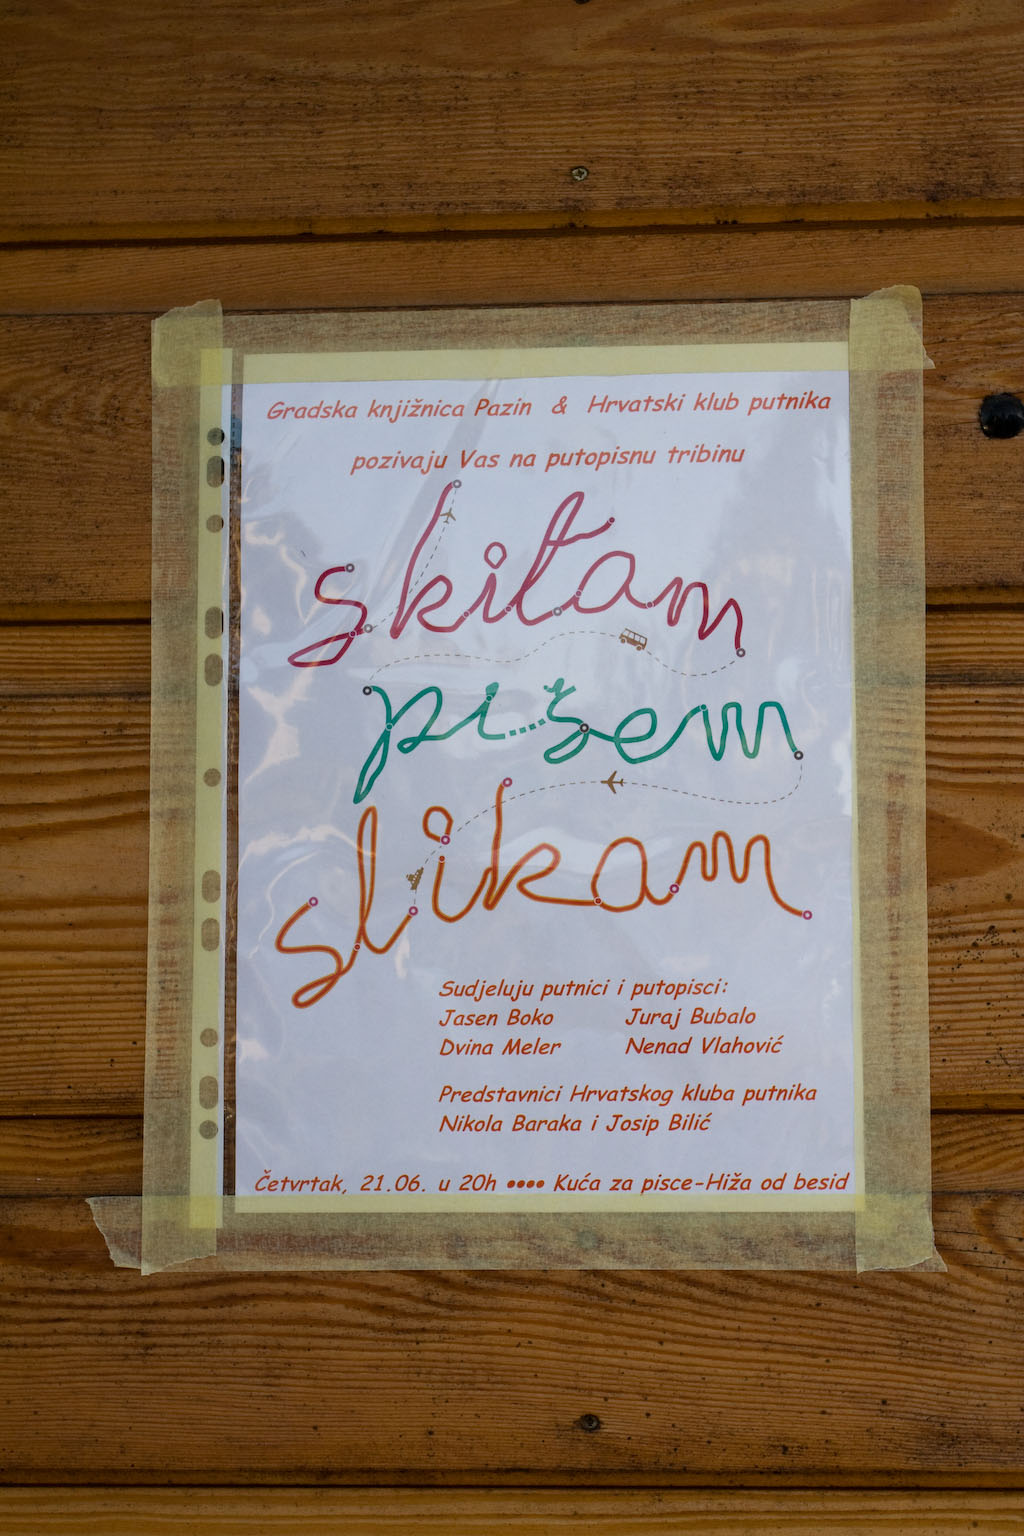 Gradska knjižnica Pazin & Hrvatski klub putnika
pozivaju Vas na putopisnu tribinu
skitam
pišem
slikam
Sudjeluju putnici i putopisci:
Jasen Boko Juraj Bubalo
Dvina Meler Nenad Vlahović
Predstavnici Hrvatskog kluba putnika
Nikola Baraka i Josip Bilić
Četvrtak, 21.06. u 20h •••• Kuća za pisce-Hiža od besid